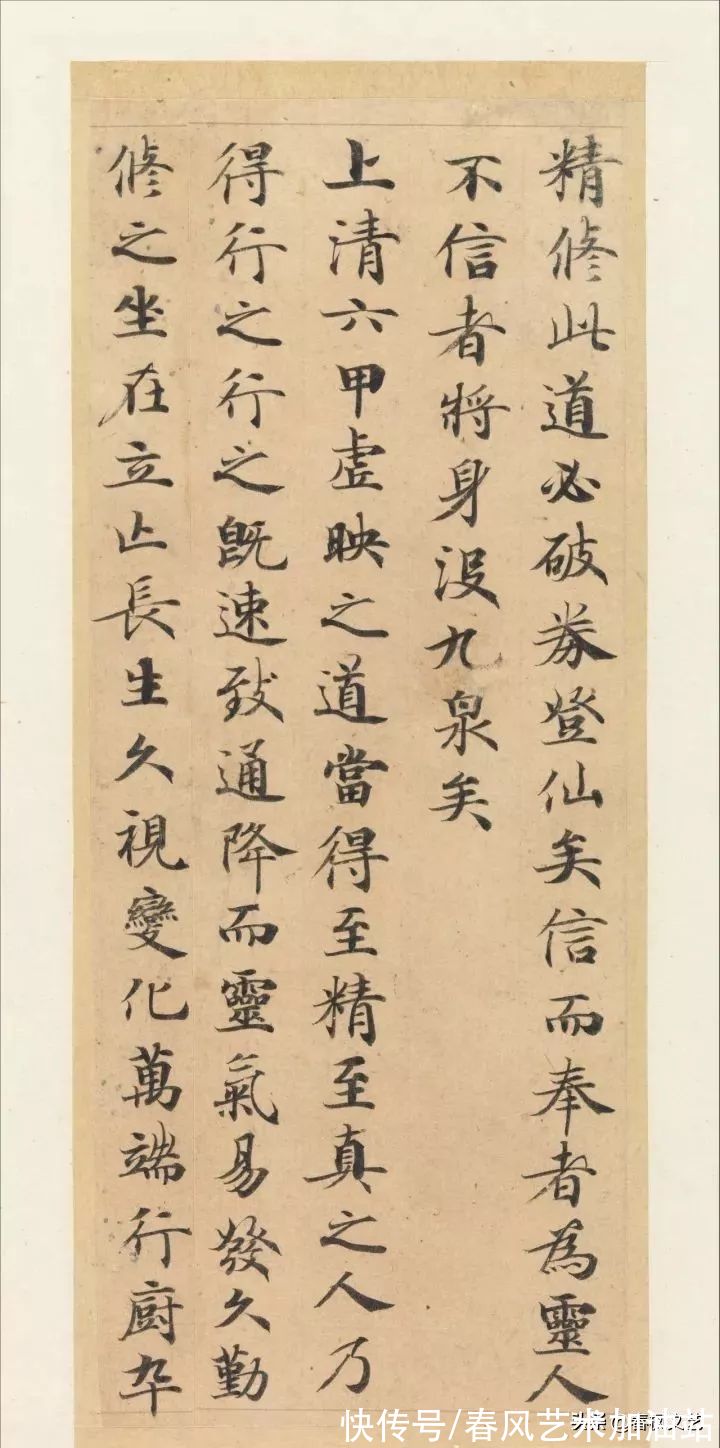 精修此道必破券登仙矣信而奉者為靈人
不信者將身沒九泉矣
上清六甲虛映之道當得至精至真之人乃
得行之行之既速致通降而靈氣易發久勤
修之坐在立亡長生久視變化萬端行廚卒
快传号/春风艺术加油站